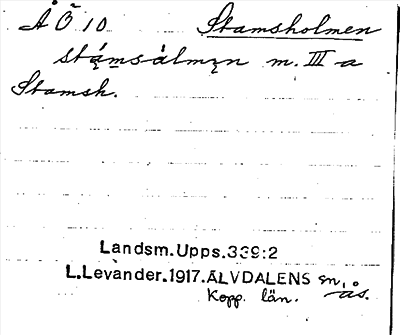 ÅÖ 10 Stamsholmen
stámsàlmn m. III a
Stamsh.
Landsm.Upps.339:2
L.Levander.1917.ÄLVDALENS sn,
Kopp. län. ås.